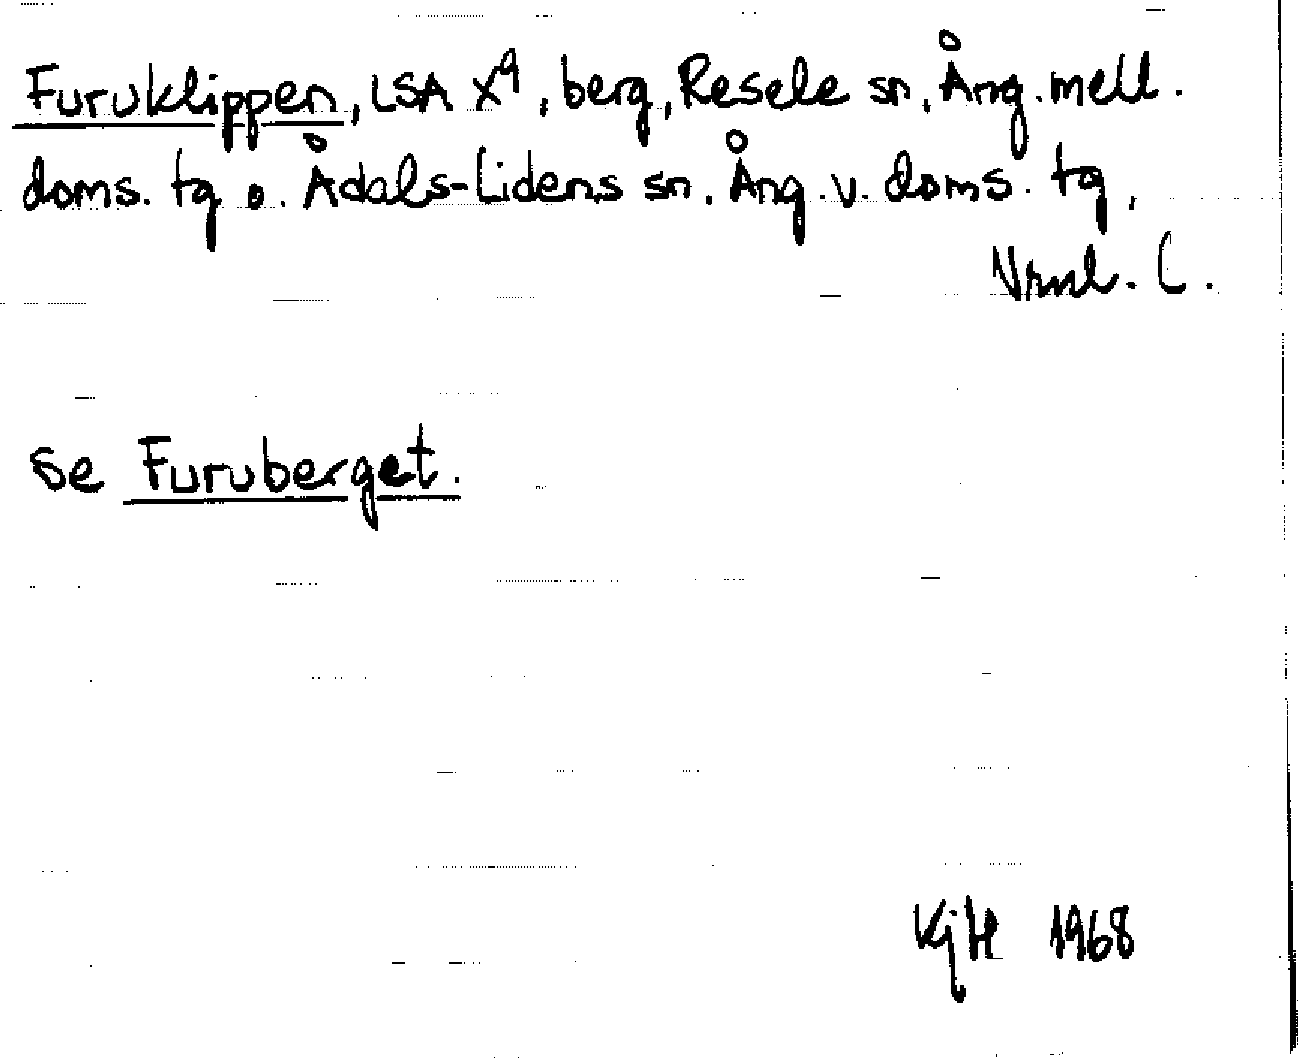 Furuklippen, LSA X⁹, berg, Resele sn, Ång. mell.
doms. tg o. Ådals-Lidens sn. Ång. v. doms. tg,
Vrml. C.
se Furuberget.
1968